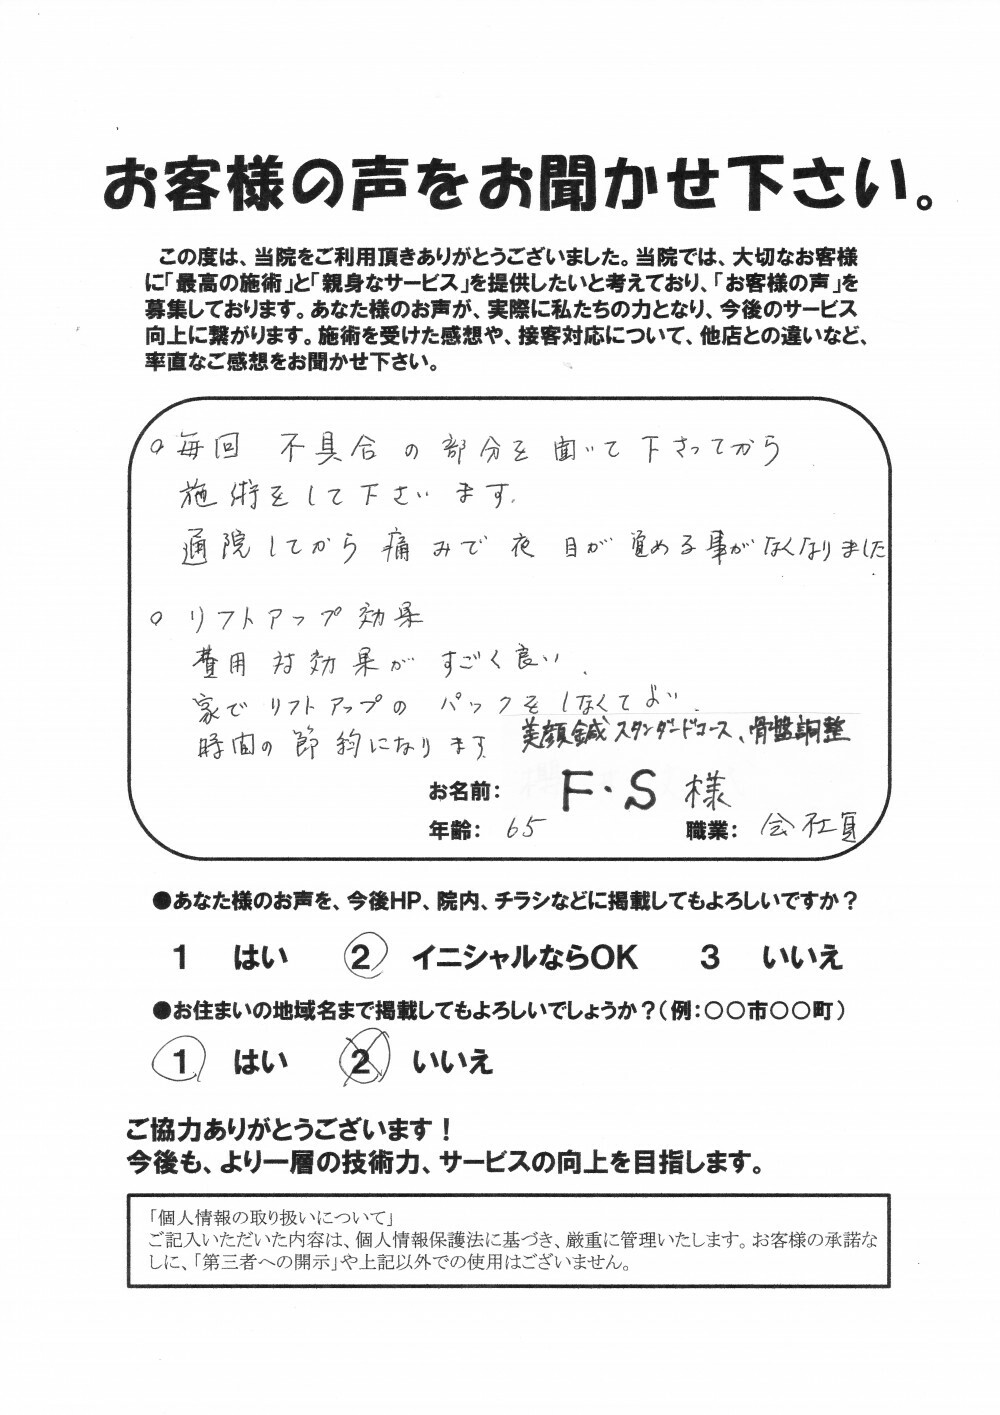 お客様の声をお聞かせ下さい。
この度は、当院をご利用頂きありがとうございました。当院では、大切なお客様
に「最高の施術」と「親身なサービス」を提供したいと考えており、「お客様の声」を
募集しております。あなた様のお声が、実際に私たちの力となり、今後のサービス
向上に繋がります。施術を受けた感想や、接客対応について、他店との違いなど、
率直なご感想をお聞かせ下さい。
○毎回 不具合の部分を聞いて下さってから
施術をして下さいます.
通院してから痛みで夜目が覚める事がなくなりました.
○リフトアップ効果
費用対効果がすごく良い.
家でリフトアップのパックをしなくてよい.
時間の節約になります
美顔鍼スタンダードコース、骨盤調整
お名前: F・S 様
年齢: 65 職業: 会社員
●あなた様のお声を、今後HP、院内、チラシなどに掲載してもよろしいですか?
1 はい 2 イニシャルならOK 3 いいえ
●お住まいの地域名まで掲載してもよろしいでしょうか?(例:○○市○○町)
1 はい 2 いいえ
ご協力ありがとうございます!
今後も、より一層の技術力、サービスの向上を目指します。
「個人情報の取り扱いについて」
ご記入いただいた内容は、個人情報保護法に基づき、厳重に管理いたします。お客様の承諾な
しに、「第三者への開示」や上記以外での使用はございません。